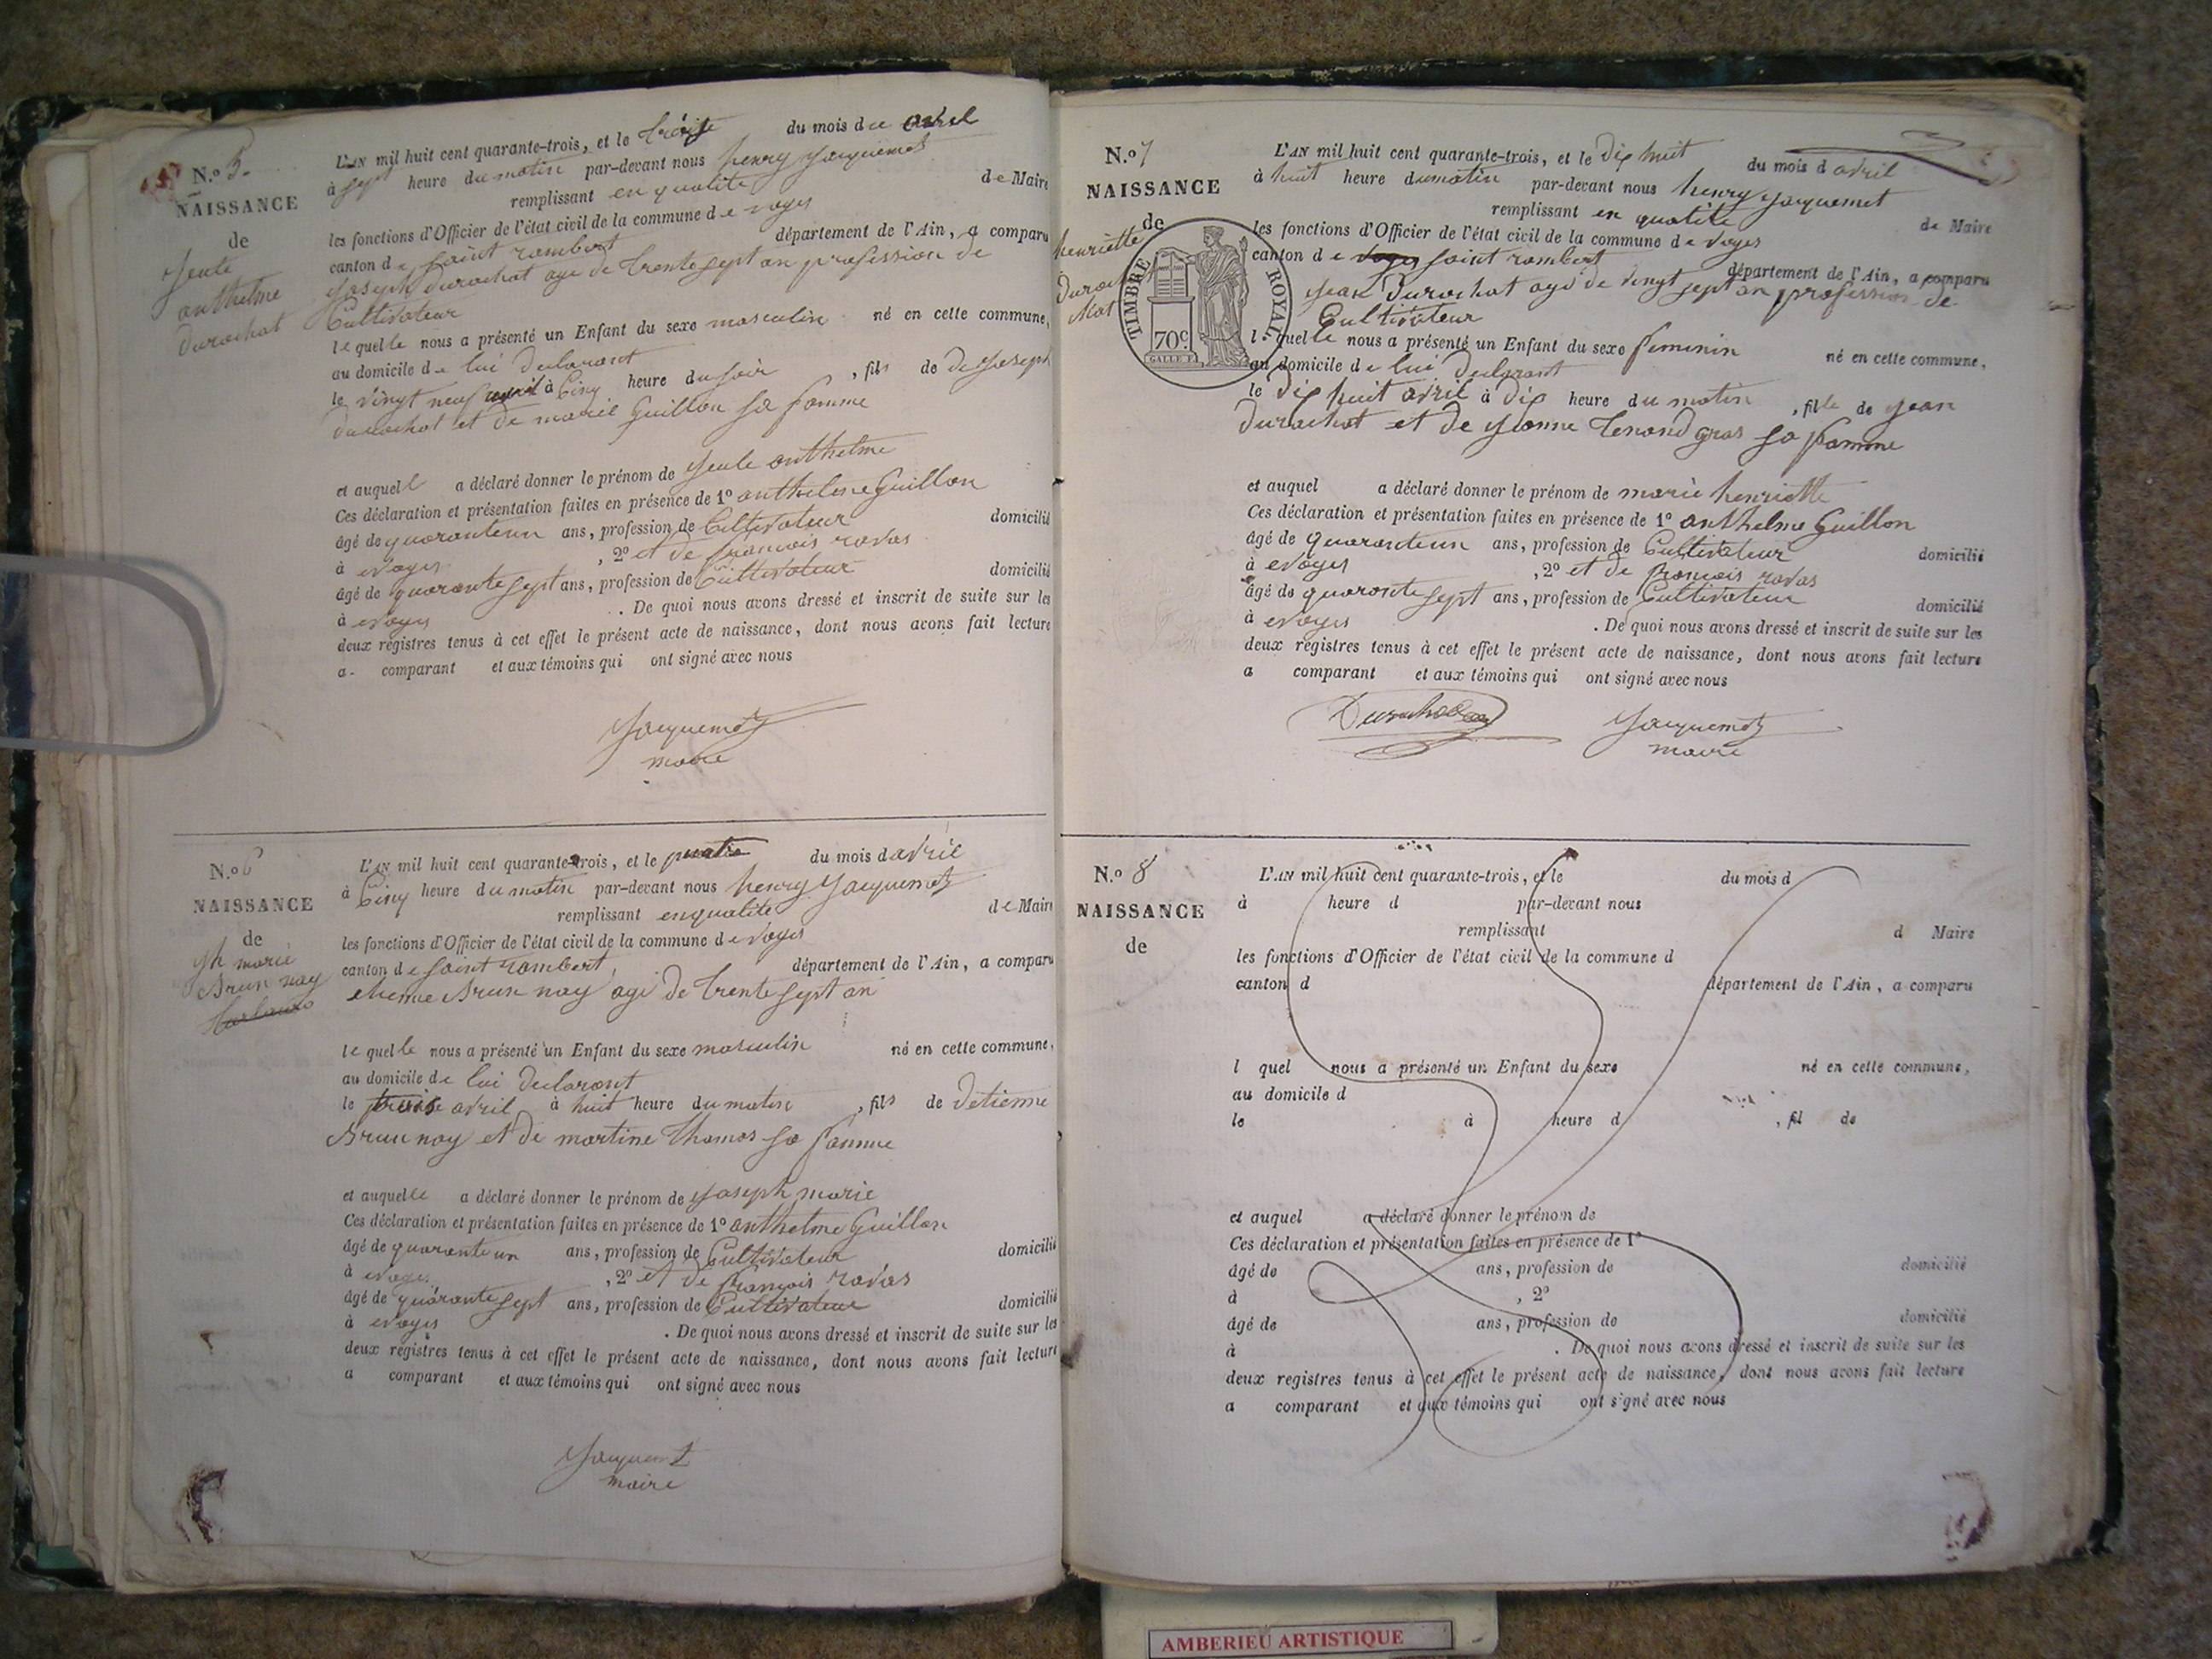 N.o 5.
NAISSANCE
de
Jeule
anthelme
durochat
L'AN mil huit cent quarante-trois, et le treize du mois de avril
à sept heure du matin par-devant nous henry Jacquemet
remplissant en qualité de Maire
les fonctions d'Officier de l'état civil de la commune de evoges
canton de saint rambert département de l'Ain, a comparu
Joseph durochat age de trente sept an profession de
Cultivateur
lequelle nous a présenté un Enfant du sexe masculin né en cette commune,
au domicile de lui declarant
le vingt neuf à Cinq heure du soir, fils de de Joseph
durochat et de marie Guillon sa famme
et auquell a déclaré donner le prénom de Jeule anthelme
Ces déclaration et présentation faites en présence de 1o anthelme Guillon
âgé de quaranteun ans, profession de Cultivateur domicilié
à evoges, 2o et de francois ravas
âgé de quarante sept ans, profession de Cultivateur domicilié
à evoges. De quoi nous avons dressé et inscrit de suite sur les
deux registres tenus à cet effet le présent acte de naissance, dont nous avons fait lecture
a- comparant et aux témoins qui ont signé avec nous
Jacquemet
maire
N.o 6
NAISSANCE
de
Jh marie
Brun nay
L'AN mil huit cent quarante-trois, et le quatre du mois d avril
à Cinq heure du matin par-devant nous henry Jacquemet
remplissant enqualité de Maire
les fonctions d'Officier de l'état civil de la commune de evoges
canton de saint rambert, département de l'Ain, a comparu
etienne Brun nay agé de trente sept an
lequelle nous a présenté un Enfant du sexe masculin né en cette commune,
au domicile de lui declarant
le trois avril à huit heure du matin, fils de detienne
Brun nay et de martine thomas sa famme
et auquelle a déclaré donner le prénom de Joseph marie
Ces déclaration et présentation faites en présence de 1o anthelme Guillon
âgé de quaranteun ans, profession de Cultivateur domicilié
à evoges, 2o et de françois ravas
âgé de quarante sept ans, profession de Cultivateur domicilié
à evoges. De quoi nous avons dressé et inscrit de suite sur les
deux registres tenus à cet effet le présent acte de naissance, dont nous avons fait lecture
a comparant et aux témoins qui ont signé avec nous
Jacquemet
maire
N.o 7
NAISSANCE
de
henriette
duroch
Mat
TIMBRE ROYAL
70c.
L'AN mil huit cent quarante-trois, et le dix huit du mois d avril
à huit heure du matin par-devant nous henry Jacquemet
remplissant en qualité de Maire
les fonctions d'Officier de l'état civil de la commune de evoges
canton de saint rambert département de l'Ain, a comparu
Jean durochat agé de vingt sept an profession de
Cultivateur
l quelle nous a présenté un Enfant du sexe feminin né en cette commune,
au domicile de lui declarant
le dix huit avril à dix heure du matin, fille de Jean
durochat et de Jeanne tenand gras sa famme
et auquel a déclaré donner le prénom de marie henriette
Ces déclaration et présentation faites en présence de 1o anthelme Guillon
âgé de quaranteun ans, profession de Cultivateur domicilié
à evoges, 2o et de francois ravas
âgé de quarante sept ans, profession de Cultivateur domicilié
à evoges. De quoi nous avons dressé et inscrit de suite sur les
deux registres tenus à cet effet le présent acte de naissance, dont nous avons fait lecture
a comparant et aux témoins qui ont signé avec nous
Durochat Jacquemet
maire
N.o 8
NAISSANCE
de
L'AN mil huit cent quarante-trois, et le du mois d
à heure d par-devant nous
remplissant d Maire
les fonctions d'Officier de l'état civil de la commune d
canton d département de l'Ain, a comparu
l quel nous a présenté un Enfant du sexe né en cette commune,
au domicile d
le à heure d, fil de
et auquel a déclaré donner le prénom de
Ces déclaration et présentation faites en présence de 1o
âgé de ans, profession de domicilié
à, 2o
âgé de ans, profession de domicilié
à. De quoi nous avons dressé et inscrit de suite sur les
deux registres tenus à cet effet le présent acte de naissance, dont nous avons fait lecture
a comparant et aux témoins qui ont signé avec nous
AMBERIEU ARTISTIQUE